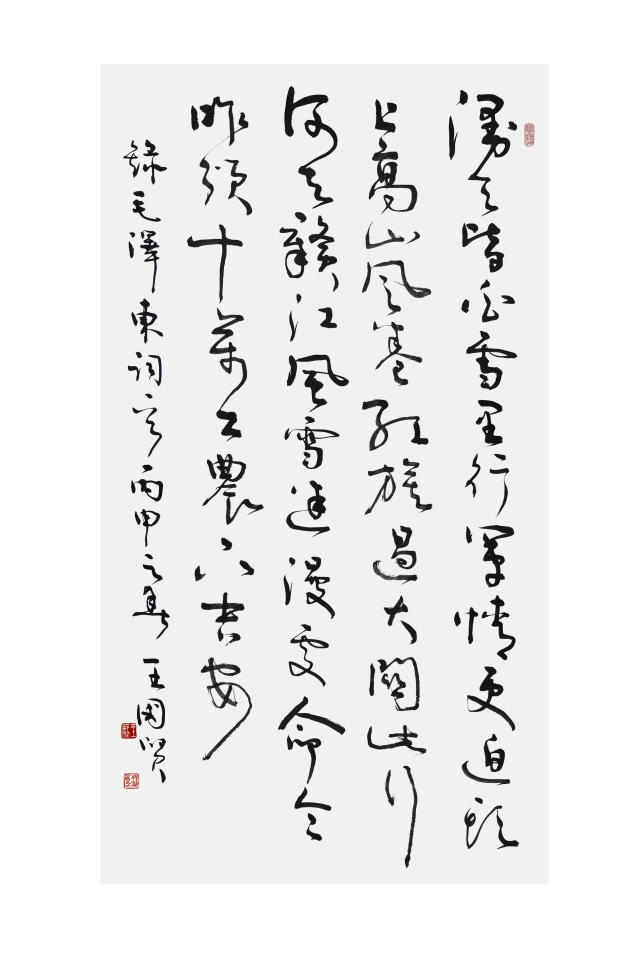 漫天皆白雪里行軍情更迫頭
上高山風卷紅旗過大關此行
何去贛江風雪迷漫處命令
昨頒十萬工農下吉安
錄毛澤東詞丙申之春王國賢